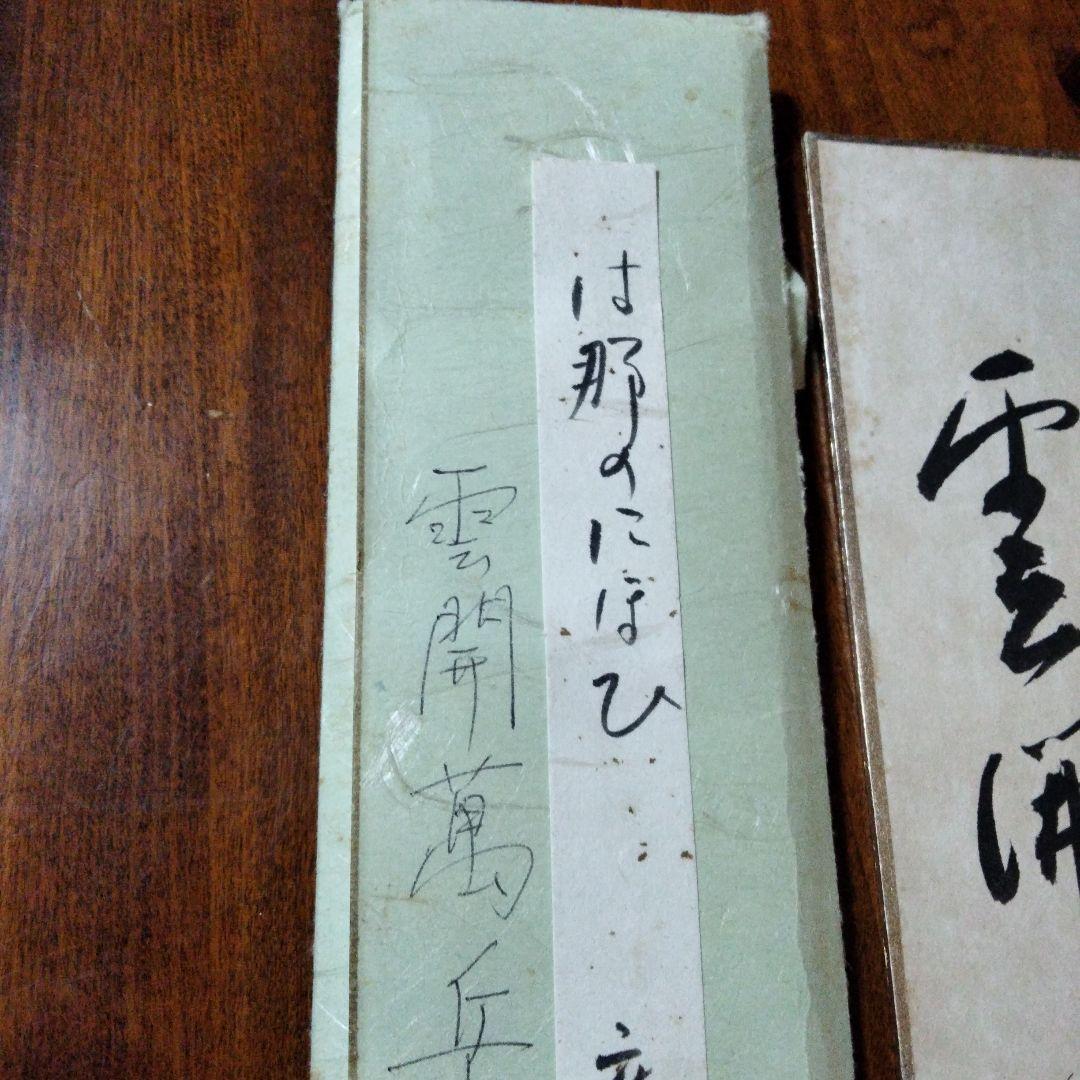 雲開
は那のにほひ
雲開萬岳